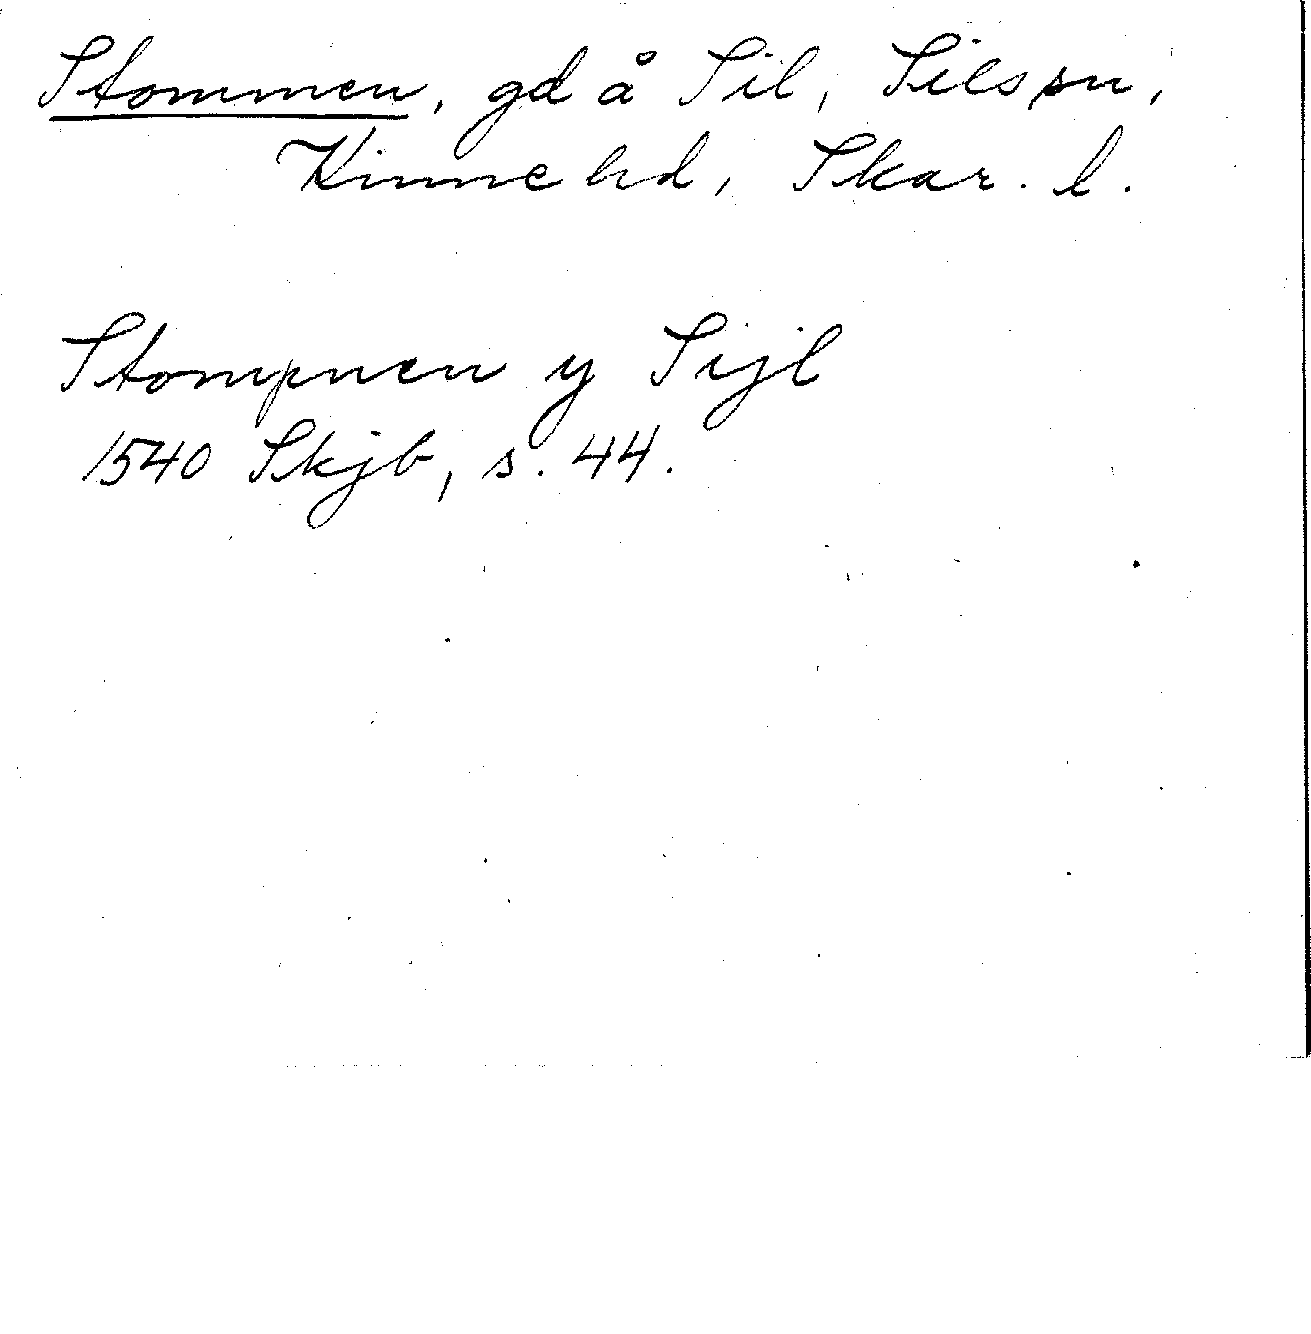 Stommen, gd å Sil, Sils sn,
Kinne hd, Skar. l.
Stompnen y Sijl
1540 Skjb, s. 44.